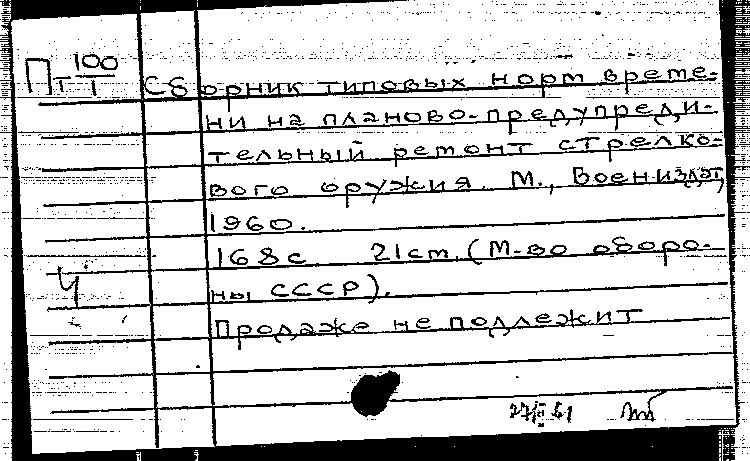 Пт 100/1 Сборник типовых норм време-
ни на планово-предупреди-
тельный ремонт стрелко-
вого оружия. М., Воениздат,
1960.
168с. 21см. (М-во оборо-
Ч
ны СССР).
Продаже не подлежит